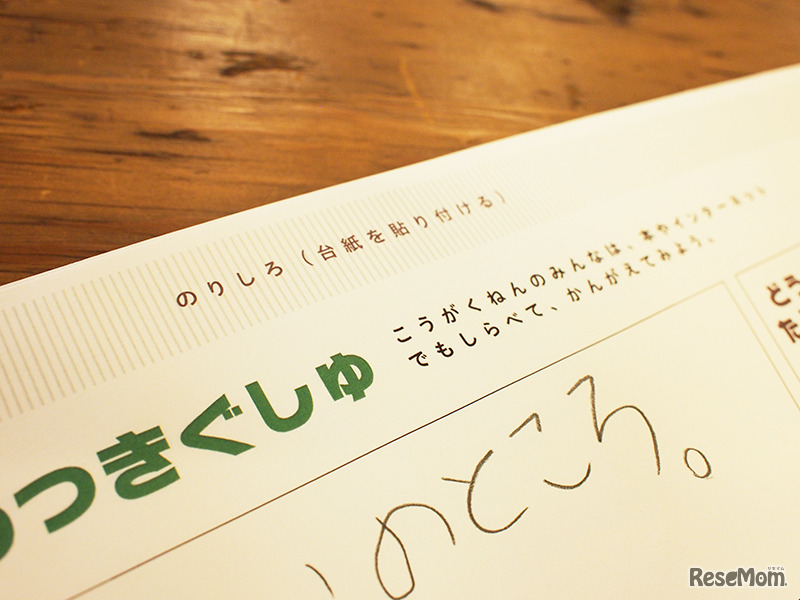 のりしろ（台紙を貼り付ける）
つきぐしゅ
こうがくねんのみんなは、本やインターネット
でもしらべて、かんがえてみよう。
どう
た
のところ。
ReseMom.